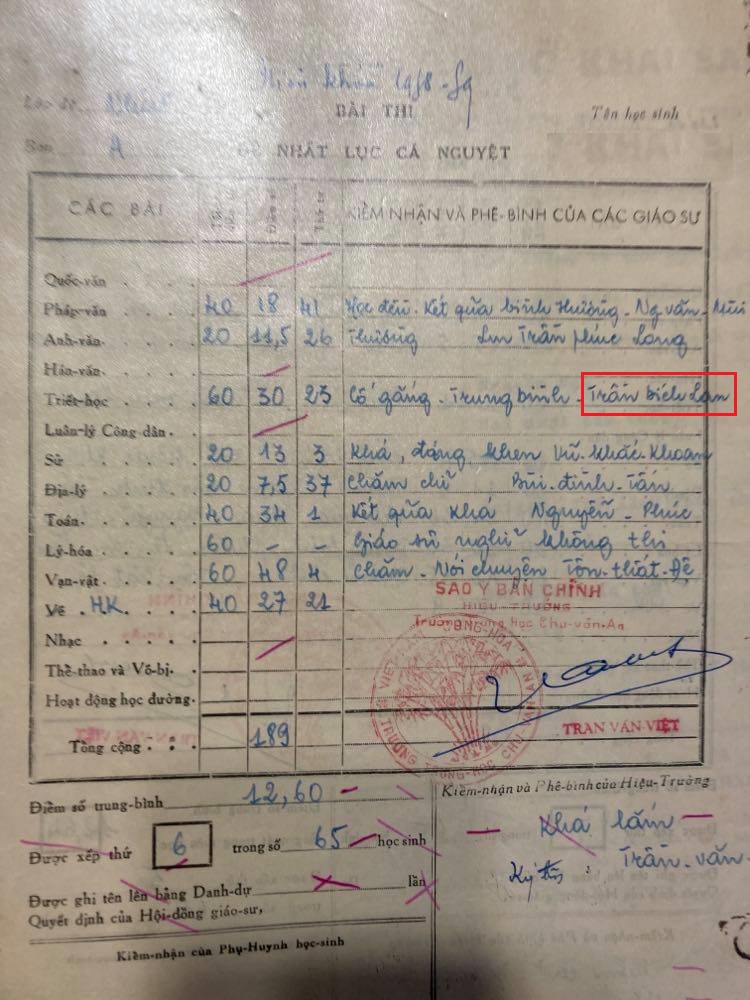 Niên khóa 1958-59
Lớp đệ Nhất
BÀI THI
Tên học sinh
Ban A
ĐỆ NHẤT LỤC CÁ NGUYỆT
CÁC BÀI KIỂM NHẬN VÀ PHÊ-BÌNH CỦA CÁC GIÁO SƯ
Quốc-văn
Pháp-văn 40 18 41 Học đều. Kết qủa bình thường. Ng văn-Mùi
Anh-văn 20 11,5 26 Thường Trần phúc Long
Hán-văn
Triết-học 60 30 23 Cố gắng. Trung bình. Trần bích Lan
Luân-lý Công-dân
Sử 20 13 3 Khá, đáng khen Vũ. Khắc. Khoan
Địa-lý 20 7,5 37 Chăm chỉ Bùi-đình-Tấn
Toán 40 34 1 Kết qủa khá Nguyễn-Phúc
Lý-hóa 60 - - Giáo sư nghỉ không thi
Vạn-vật 60 48 4 Chăm. Nói chuyện Tôn-thất-Đệ
Vẽ HK 40 27 21
SAO Y BẢN CHÍNH
HIỆU TRƯỞNG
Trường Trung học Chu-văn-An
Nhạc
Thể-thao và Võ-bị
Hoạt động học đường
Tổng cộng 189
TRẦN VĂN VIỆT
Điểm số trung-bình 12,60
Kiểm-nhận và Phê-bình của Hiệu-Trưởng
Được xếp thứ 6 trong số 65 học sinh
Khá lắm
Ký tên: Trần-văn-
Được ghi tên lên bảng Danh-dự lần
Quyết định của Hội-đồng giáo-sư,
Kiểm-nhận của Phụ-Huynh học-sinh